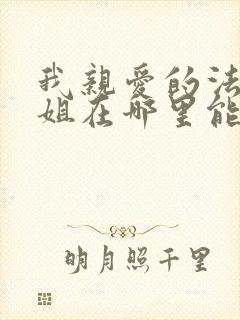 我親愛的法
姐在哪里能
明月照千里